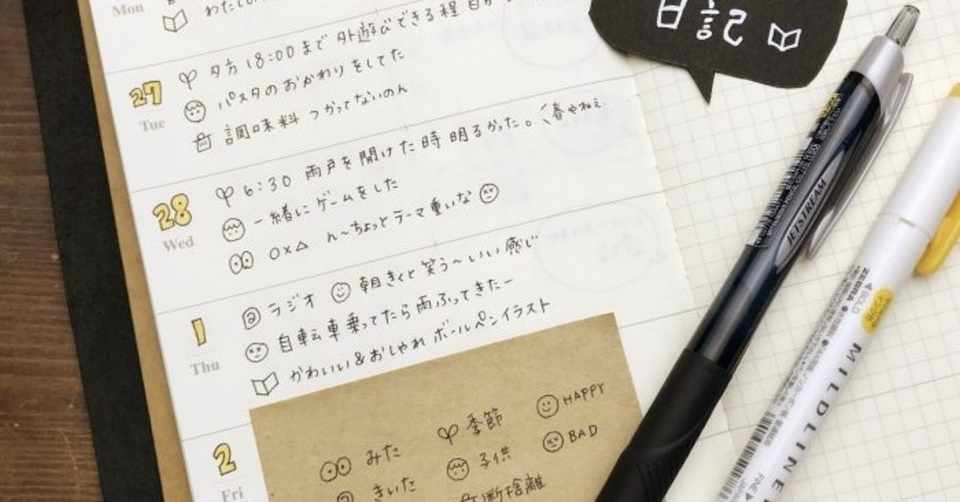 Mon
わたし
27
Tue
夕方 18:00まで 外遊びできる程
パスタのおかわりをしてた
調味料 つかってないのん
28
Wed
6:30 雨戸を開けた時 明るかった。春やねぇ
一緒にゲームをした
○×△ ん〜ちょっとテーマ重いな
1
Thu
ラジオ 朝きくと笑う〜いい感じ
自転車乗ってたら雨ふってきたー
かわいい&おしゃれ ボールペンイラスト
2
Fri
みた 季節 HAPPY
きいた 子供 BAD
断捨離
日記
JETSTREAM
ZEBRA
BOLD
MILDLINE
FINE